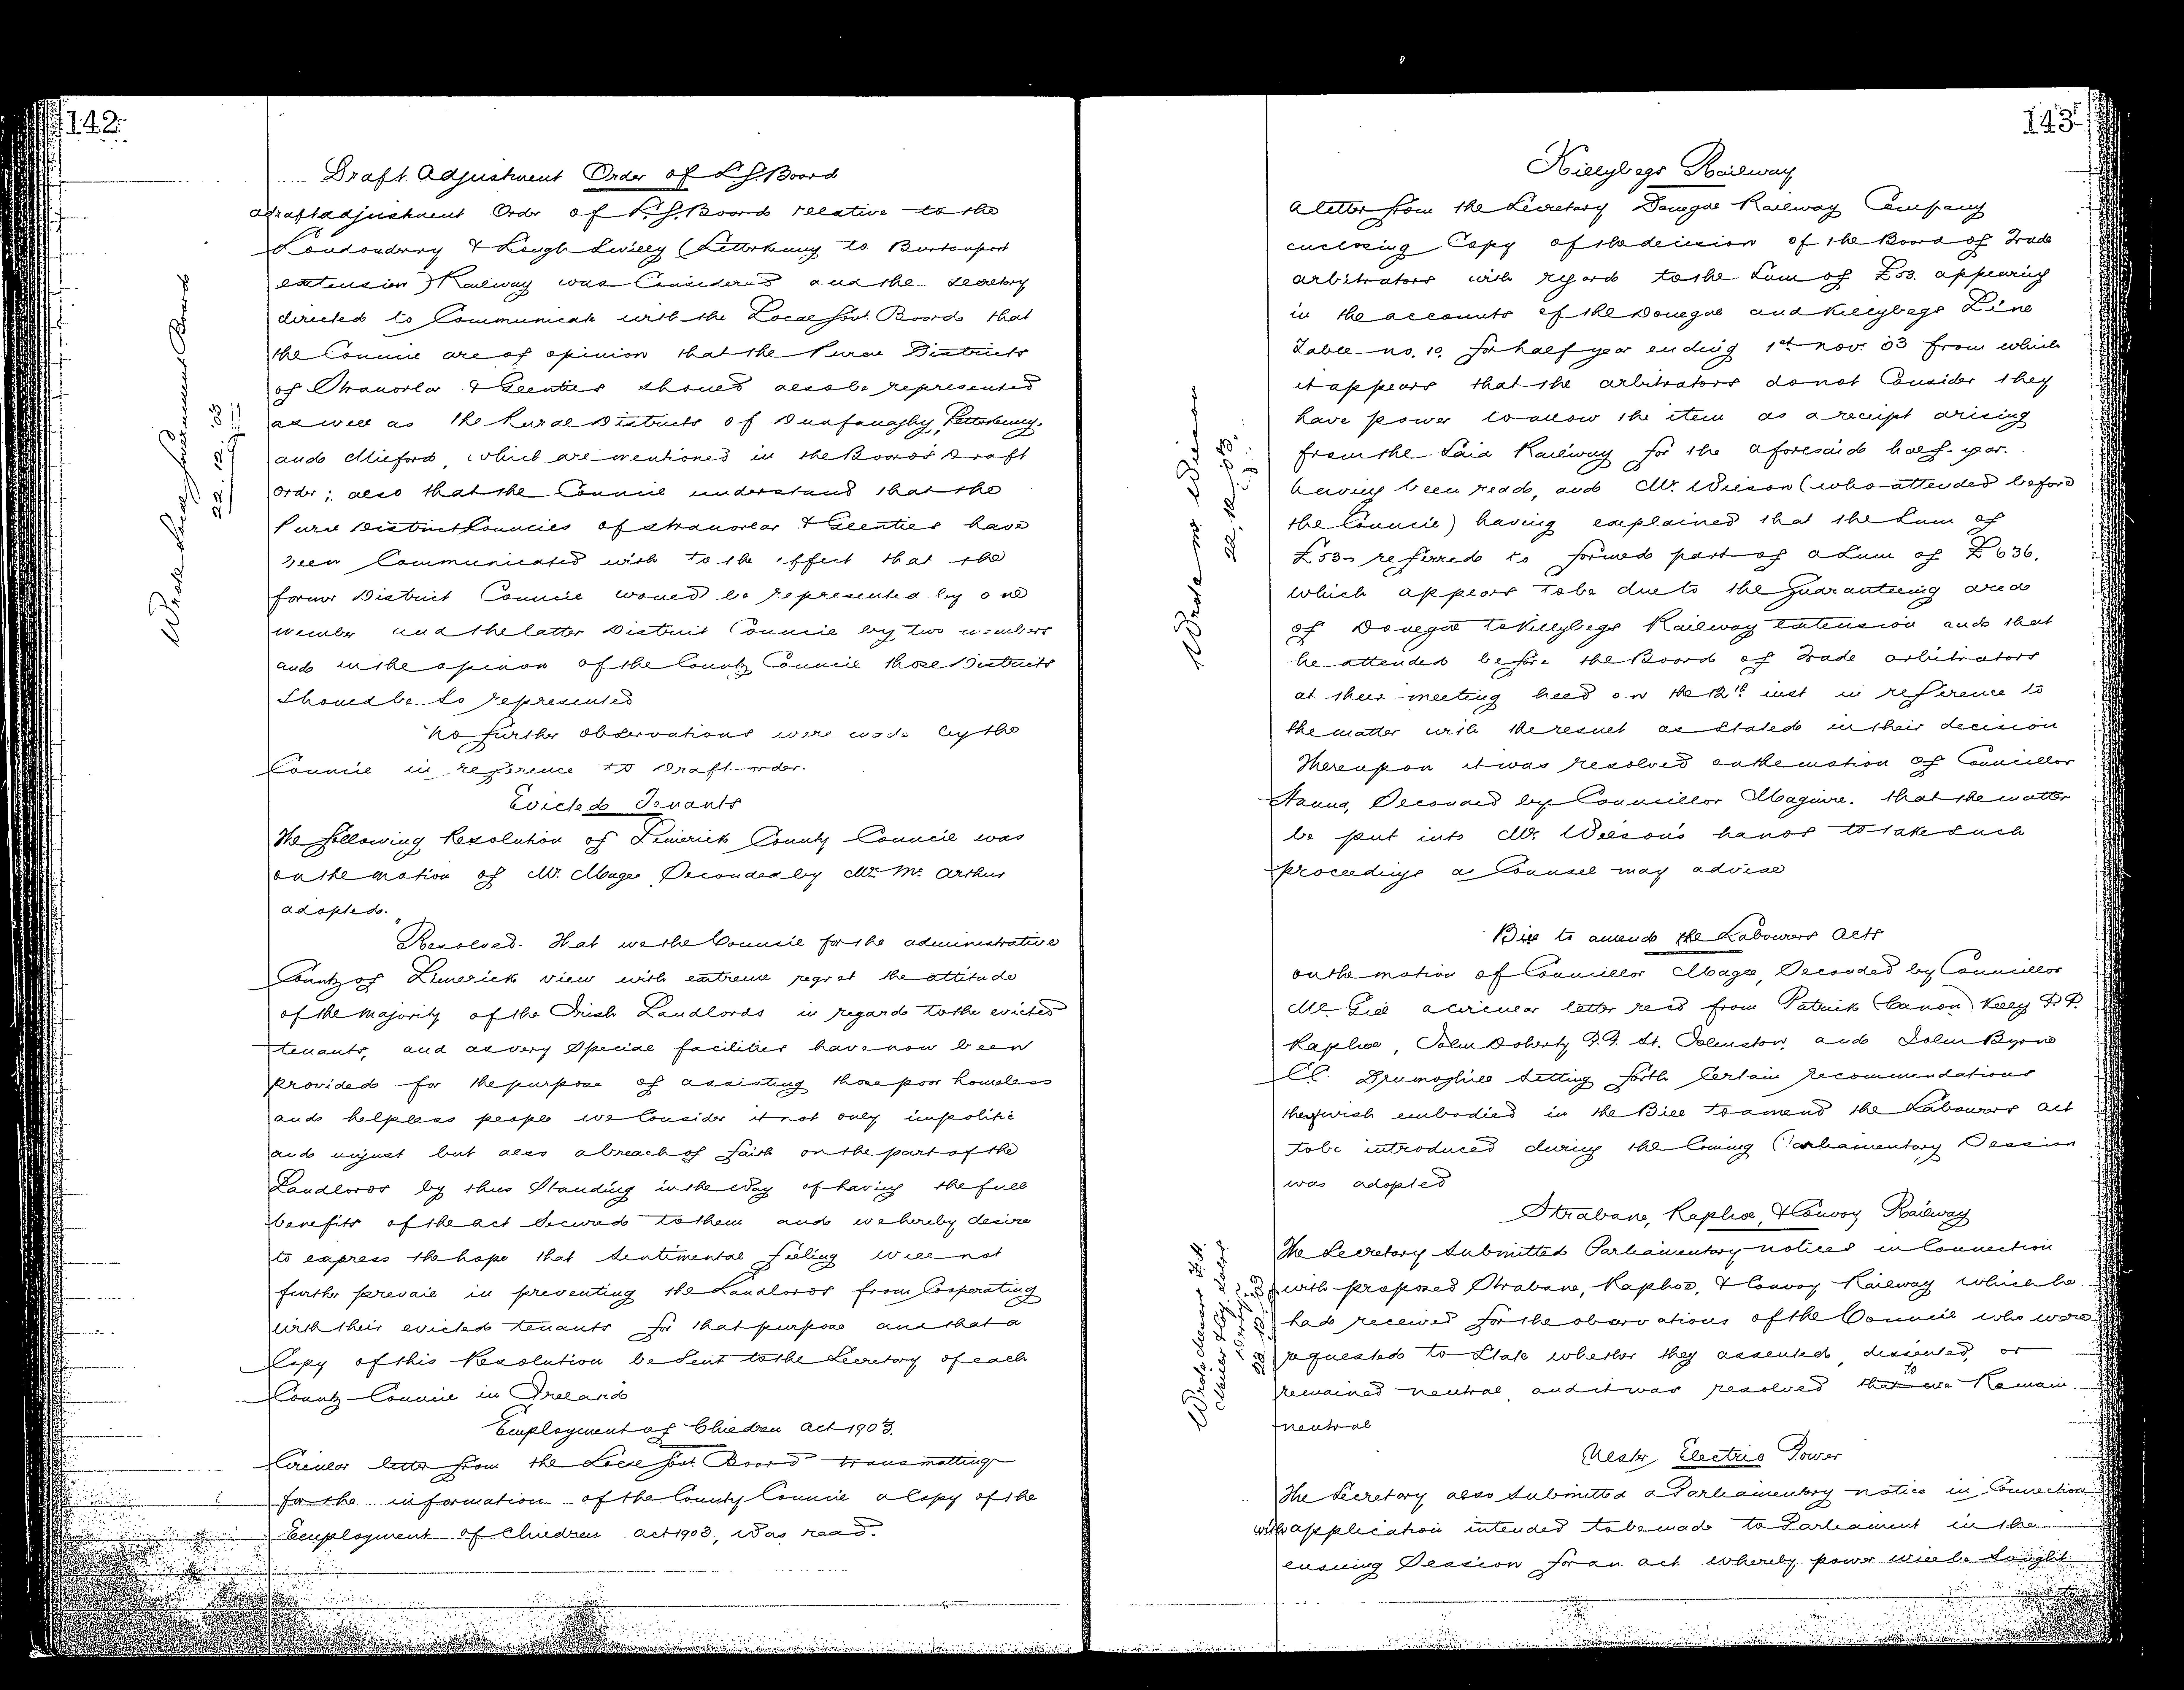 142
Draft Adjustment Order of L.G. Board
adraftadjustment Order of L.G. Board relative to the
Londonderry & Lough Swilly (Letterkenny to Burtonport
extension) Railway was Considered and the Secretary
directed to Communicate with the Local Govt. Board that
the Council are of opinion that the Rural Districts
of Stranorlar & Glenties should also be represented
as well as the Rural Districts of Dunfanaghy, Letterkenny,
and Milford, which are mentioned in the Board's Draft
Order; also that the Council understand that the
Rural District Councils of Stranorlar & Glenties have
been Communicated with to the effect that the
former District Council would be represented by one
member and the latter District Council by two members
and in the opinion of the County Council those Districts
Should be so represented
No further observations were made by the
Council in reference to Draft order.
Evicted Tenants
The following Resolution of Limerick County Council was
on the motion of Mr. Magee Seconded by Mr. McArthur
adopted.
"Resolved. That we the Council for the administrative
County of Limerick view with extreme regret the attitude
of the Majority of the Irish Landlords in regard to the evicted
tenants, and as very Special facilities have now been
provided for the purpose of assisting those poor homeless
and helpless people we Consider it not only impolitic
and unjust but also a breach of faith on the part of the
Landlords by thus Standing in the way of having the full
benefits of the act Secured to them and we hereby desire
to express the hope that Sentimental feeling will not
further prevail in preventing the Landlords from Cooperating
with their evicted tenants for that purpose and that a
Copy of this Resolution be Sent to the Secretary of each
County Council in Ireland
Employment of Children Act 1903.
Circular letter from the Local Govt. Board transmitting
for the information of the County Council a Copy of the
Employment of Children act 1903, was read.
Wrote Local Government Board
22. 12. 03
143
Killybegs Railway
A letter from the Secretary Donegal Railway Company
enclosing Copy of the decision of the Board of Trade
arbitrators with regard to the Sum of £53. appearing
in the accounts of the Donegal and Killybegs Line
Table no. 10 for half year ending 1st Nov. 03 from which
it appears that the arbitrators do not Consider they
have power to allow the item as a receipt arising
from the Said Railway for the aforesaid half-year.
having been read, and Mr. Wilson (who attended before
the Council) having explained that the Sum of
£53 referred to formed part of a Sum of £636.
which appears to be due to the Guaranteeing area
of Donegal to Killybegs Railway extension and that
he attended before the Board of Trade arbitrators
at their meeting held on the 12th inst in reference to
the matter with the result as Stated in their decision
Thereupon it was resolved on the motion of Councillor
Hanna, Seconded by Councillor Maguire. that the matter
be put into Mr. Wilson's hands to take Such
proceedings as Counsel may advise
Wrote Mr Wilson
22. 12. 03.
Bill to amend the Labourers Acts
on the motion of Councillor Magee, Seconded by Councillor
McGill a circular letter recd from Patrick (Canon) Kelly P.P.
Raphoe, John Doherty P.P. St. Johnston, and John Byrne
CC. Drumoghill Setting forth Certain recommendations
they wish embodied in the Bill to amend the Labourers act
to be introduced during the Coming Parliamentary Session
was adopted
Strabane, Raphoe, & Convoy Railway
The Secretary Submitted Parliamentary notices in Connection
with proposed Strabane, Raphoe, & Convoy Railway which he
had received for the observations of the Council who were
requested to State whether they assented, dissented, or
remained neutral, and it was resolved that we to Remain
neutral
Ulster Electric Power
The Secretary also Submitted a Parliamentary notice in Connection
with application intended to be made to Parliament in the
ensuing Session for an act whereby power will be Sought